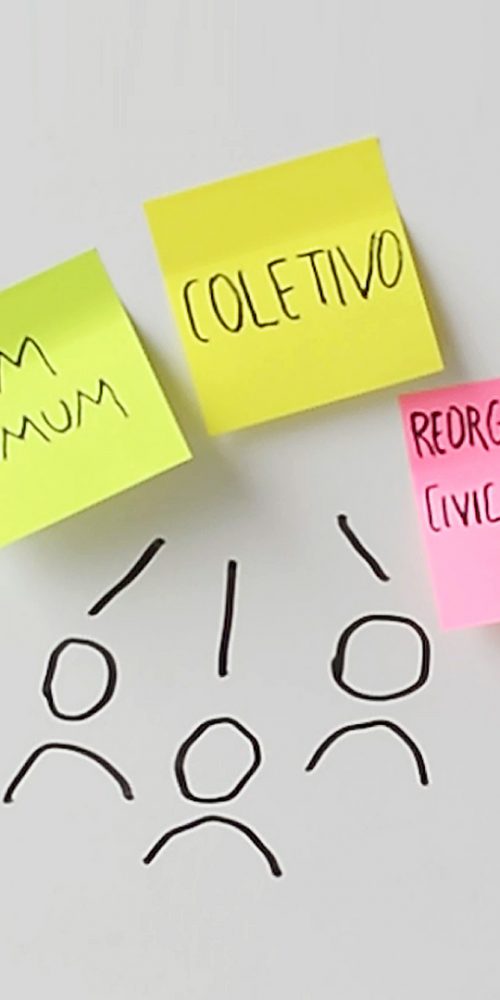 M
MUM
COLETIVO
REORG
CIVIC